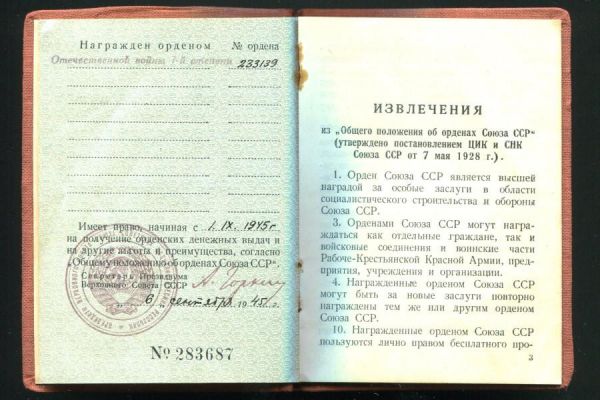 Награжден орденом № ордена
Отечественной войны 1-й степени 233139
Имеет право, начиная с 1. IX. 1945 г
на получение орденских денежных выдач и
на другие льготы и преимущества, согласно
„Общему положению об орденах Союза ССР“
Секретарь Президиума
Верховного Совета СССР А. Горкин
„ 6 „ сентября 1945 г.
№ 283687
ИЗВЛЕЧЕНИЯ
из „Общего положения об орденах Союза ССР“
(утверждено постановлением ЦИК и СНК
Союза ССР от 7 мая 1928 г.).
1. Орден Союза ССР является высшей
наградой за особые заслуги в области
социалистического строительства и обороны
Союза ССР.
3. Орденами Союза ССР могут награж-
даться как отдельные граждане, так и
войсковые соединения и воинские части
Рабоче-Крестьянской Красной Армии, пред-
приятия, учреждения и организации.
4. Награжденные орденом Союза ССР
могут быть за новые заслуги повторно
награждены тем же или другим орденом
Союза ССР.
10. Награжденные орденом Союза ССР
пользуются лично правом бесплатного про-
3